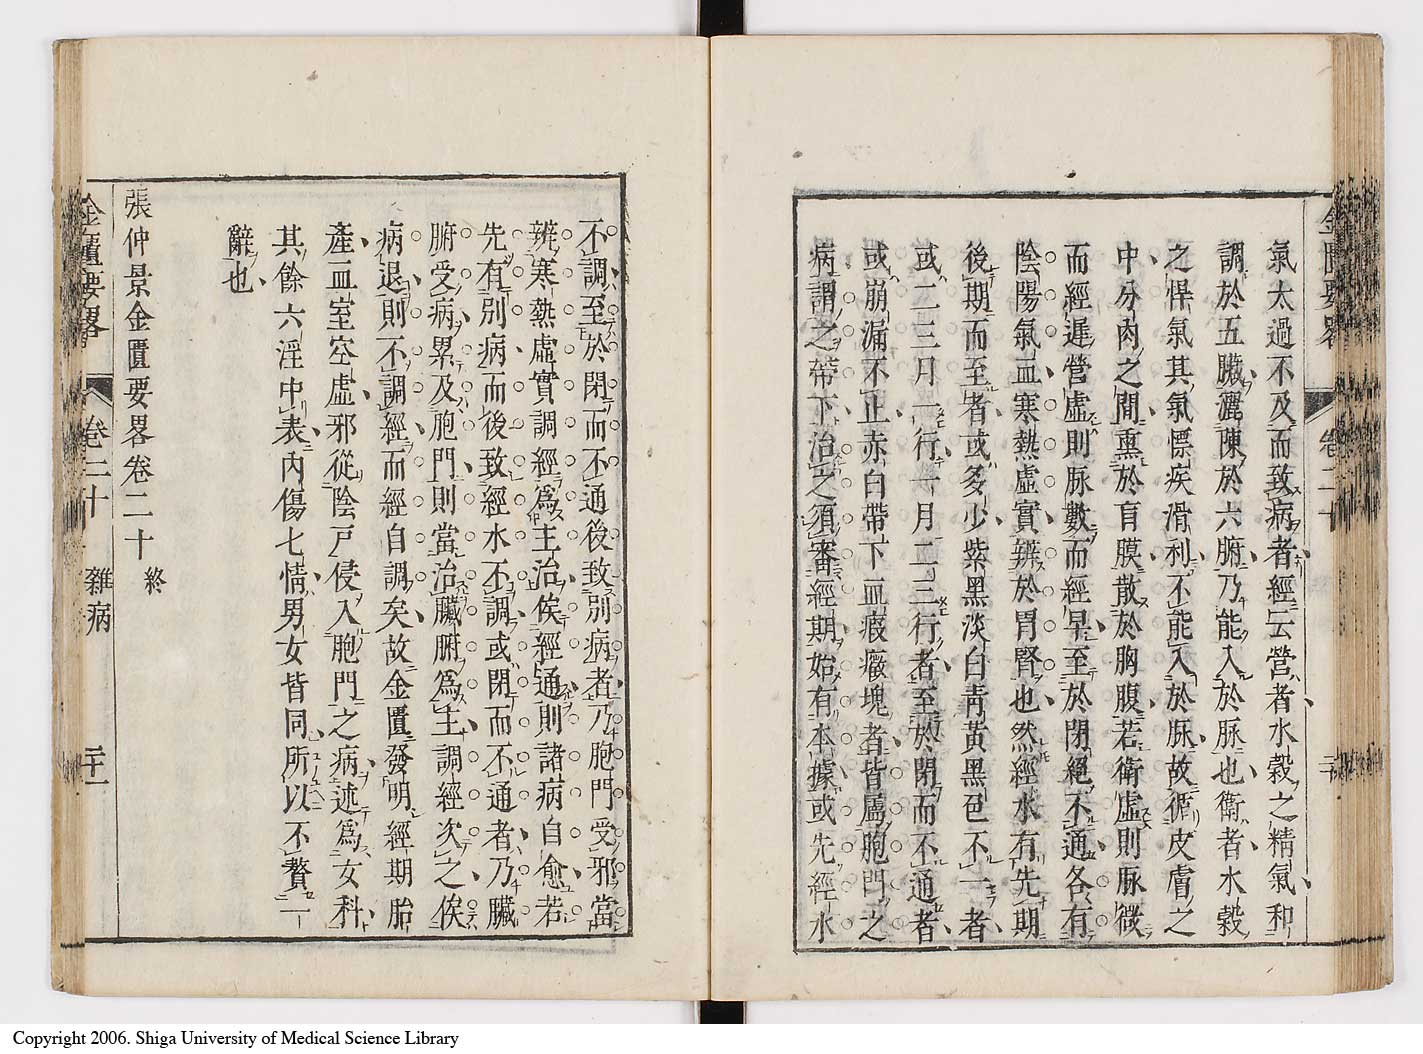 氣太過不及而致病者經云營者水穀之精氣和
調於五臟灑陳於六腑乃能入於脉也衛者水穀
之悍氣其氣慓疾滑利不能入於脉故循皮膚之
中分肉之間熏於肓膜散於胸腹若衛虛則脉微
而經遲營虛則脉數而經早至於閉絕不通各有
陰陽氣血寒熱虛實辨於胃腎也然經水有先期
後期而至者或多少紫黑淡白靑黃黑色不一者
或二三月一行一月二三行者至於閉而不通者
或崩漏不止赤白帶下血瘕癥塊者皆屬胞門之
病謂之帶下治之須審經期始有本據或先經水
不調至於閉而不通後致別病者乃胞門受邪當
辨寒熱虛實調經爲主治俟經通則諸病自愈若
先有別病而後致經水不調或閉而不通者乃臟
腑受病累及胞門則當治臟腑爲主調經次之俟
病退則不調經而經自調矣故金匱發明經期胎
產血室空虛邪從陰戶侵入胞門之病述爲女科
其餘六淫中表內傷七情男女皆同所以不贅一
辭也
張仲景金匱要畧卷二十 終
金匱要畧 卷二十 雜病 二十一